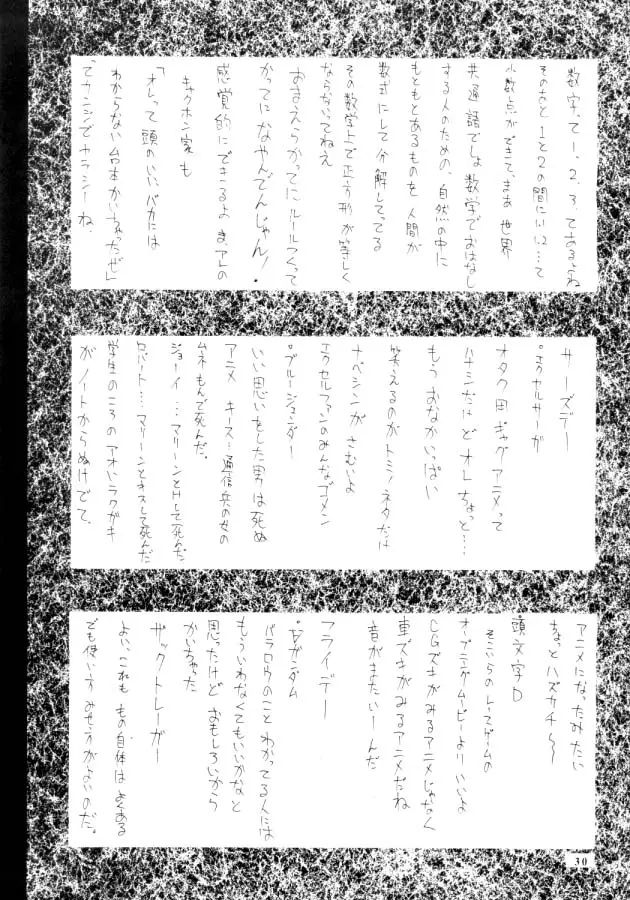 数字、て1、2、3、てあるよね
そのあと1と2の間に1.1、1.2…って
小数点ができて、まあ世界
共通語でしょ数学でおはなし
する人のための、自然の中に
もともとあるものを人間が
数式にして分解してってる
その数学上で正方形が等しく
ならないってねえ
おまえらかってにルールつくって
かってになやんでんじゃん!
感覚的にできるよ ま、アレの
キャクホン家も
「オレって頭のいいバカには
わからない台本かいちゃったぜ」
てカンジでカラシーね、
サーズデー
°エクセルサーガ
オタク用ギャグアニメって
ハナシだけどオレちょっと…
もうおなかいっぱい
笑えるのがトミノネタだけ
ナベシンがさむいよ
エクセルファンのみんなゴメン
°ブルージェンダー
いい思いをした男は死ぬ
アニメ キース…通信兵の女の
ムネもんで死んだ。
ジョーイ…マリーンとHして死んだ
ロバート…マリーンとキスして死んだ
学生のころのアオいラクガキ
がノートからぬけでて、
アニメになったみたい
ちょっとハズカチ〜〜
°頭文字D
そこいらのレースゲームの
オープニングムービーよりいいよ
CGズキがみるアニメじゃなく
車ズキがみるアニメだね
音がまたいーんだ
フライデー
°∀ガンダム
バラロウのことわかってる人には
もういわなくてもいいかなと
思ったけどおもしろいから
かいちゃった
ザックトレーガー
よい、これももの自体はよくある
でも使い方みせ方がよいのだ。
30